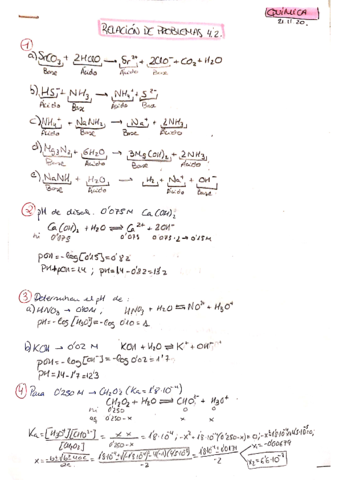 QUÍMICA
21.11.20.
RELACIÓN DE PROBLEMAS 4.2.
1
a) SrCO3 + 2HClO → Sr2+ + 2ClO- + CO2 + H2O
Base Ácido Ácido Base
b) HS- + NH3 → NH4+ + S2-
Ácido Base Ácido Base
c) NH4+ + NaNH2 → Na+ + 2NH3
Ácido Base Ácido
d) Mg3N2 + 6H2O → 3Mg(OH)2 + 2NH3
Base Ácido Base Ácido
e) + H2O → H2 + Na+ + OH-
Base Ácido Ácido Base
2 pH de disol. 0'075M Ca(OH)2
Ca(OH)2 + H2O ⇌ Ca2+ + 2OH-
ni 0'075 0'075 0'075·2 → 0'15M
pOH = -log[0'15] = 0'82
pH+pOH=14 ; pH=14-0'82=13'2
3 Determinar el pH de:
a) HNO3 → 0'10M, HNO3 + H2O ⇌ NO3- + H3O+
pH = -log[H3O+] = -log 0'10 = 1
b) KOH → 0'02 M KOH + H2O ⇌ K+ + OH-
pOH = -log[OH-] = -log 0'02 = 1'7
pH = 14-1'7 = 12'3
4 Para 0'250 M → CH2O2 (Ka = 1'8·10-4)
CH2O2 + H2O ⇌ CHO2- + H3O+
ni 0'250 0 0
eq 0'250-x x x
Ka = [H3O+][CHO2-] / [CH2O2] = x·x / 0'250-x = 1'8·10-4
x2 = 6'6·10-3